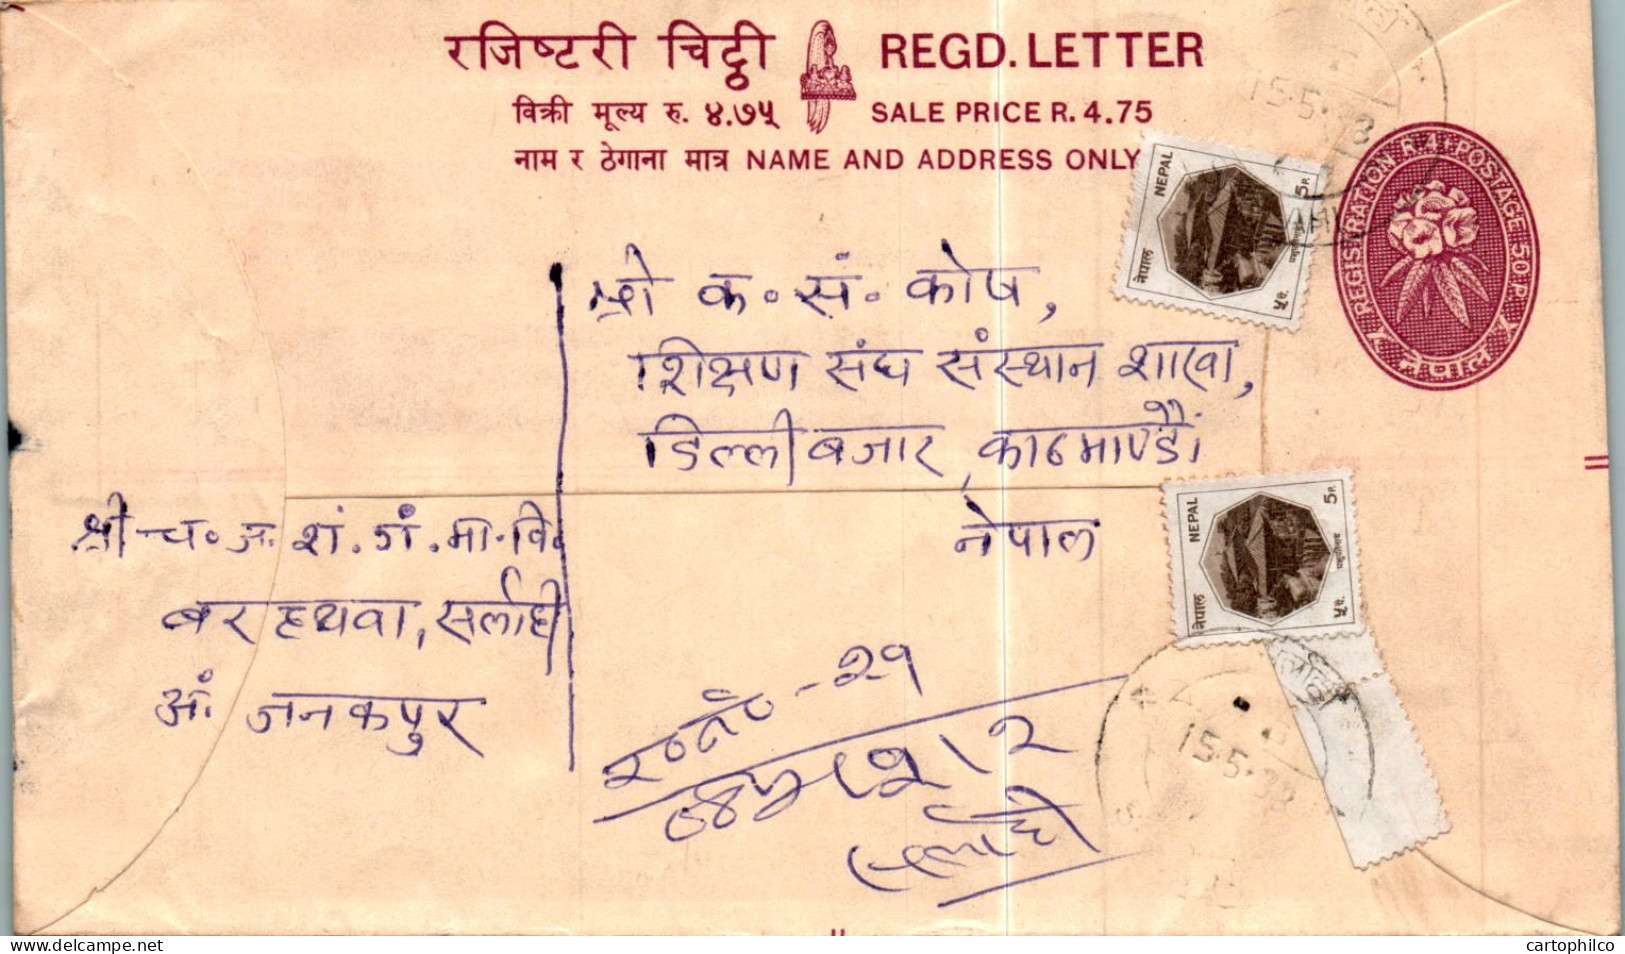 रजिष्टरी चिट्ठी REGD. LETTER
विक्री मूल्य रु. ४.७५ SALE PRICE R. 4.75
नाम र ठेगाना मात्र NAME AND ADDRESS ONLY
REGISTRATION R.4 POSTAGE 50 P.
नेपाल
NEPAL 5 P.
नेपाल ५ पै.
श्री क. सं. कोष,
शिक्षण संघ संस्थान शाखा,
डिल्लीबजार, काठमाण्डौं
नेपाल
NEPAL 5 P.
नेपाल ५ पै.
श्री च. ज. शं. गं. मा. वि.
बरहथवा, सर्लाही
अं. जनकपुर
र०नं० - २१
सर्लाही
15.5.88
15.5.88
cartophilco